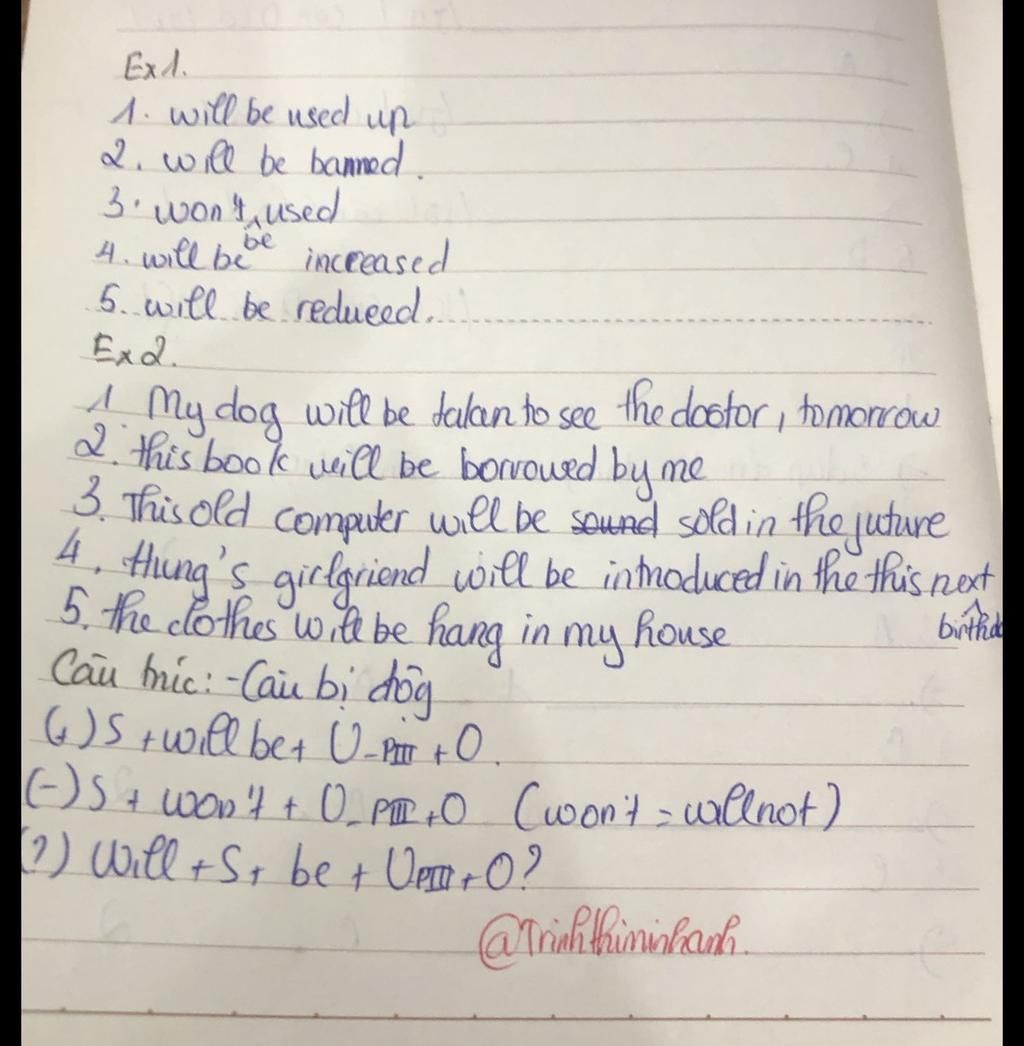 Ex1.
1. will be used up
2. will be banned.
3. won't be used
4. will be increased
5. will be reduced.
Ex2.
1 My dog will be talan to see the doctor, tomorrow
2. this book will be borrowed by me
3. This old computer will be sound sold in the juture
4. Hung's girlgriend will be introduced in the this next
birthda
5. the clothes will be hang in my house
Cấu trúc: - Câu bị động
(+) S + will be + V_PIII + O.
(-) S + won't + V_PIII + O (won't = will not)
(?) Will + S + be + VPIII + O?
@Trinhthiminhanh.